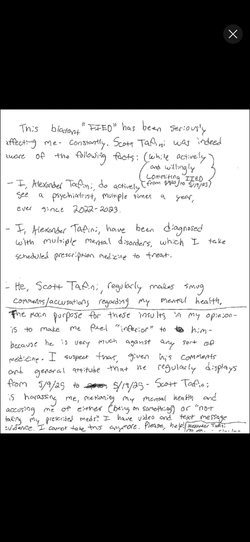 This blatant "IIED" has been seriously
effecting me - constantly. Scott Tafini was indeed
aware of the following facts: (while actively
and willingly
committing IIED
- I, Alexander Tafini, do actively (from 5/9/25 to 5/19/25)
see a psychiatrist, multiple times a year,
ever since 2022-2023.
- I, Alexander Tafini, have been diagnosed
with multiple mental disorders, which I take
scheduled prescription medicine to treat.
- He, Scott Tafini, regularly makes smug
comments/accusations regarding my mental health.
The main purpose for these insults in my opinion-
is to make me feel "inferior" to him-
because he is very much against any sort of
medicine. I suspect that, given his comments
and general attitude that he regularly displays
from 5/9/25 to 5/19/25- Scott Tafini
is harassing me, mentioning my mental health and
accusing me of either (being on something) or "not
taking my prescribed meds". I have video and text message
evidence. I cannot take this anymore. Please, help!